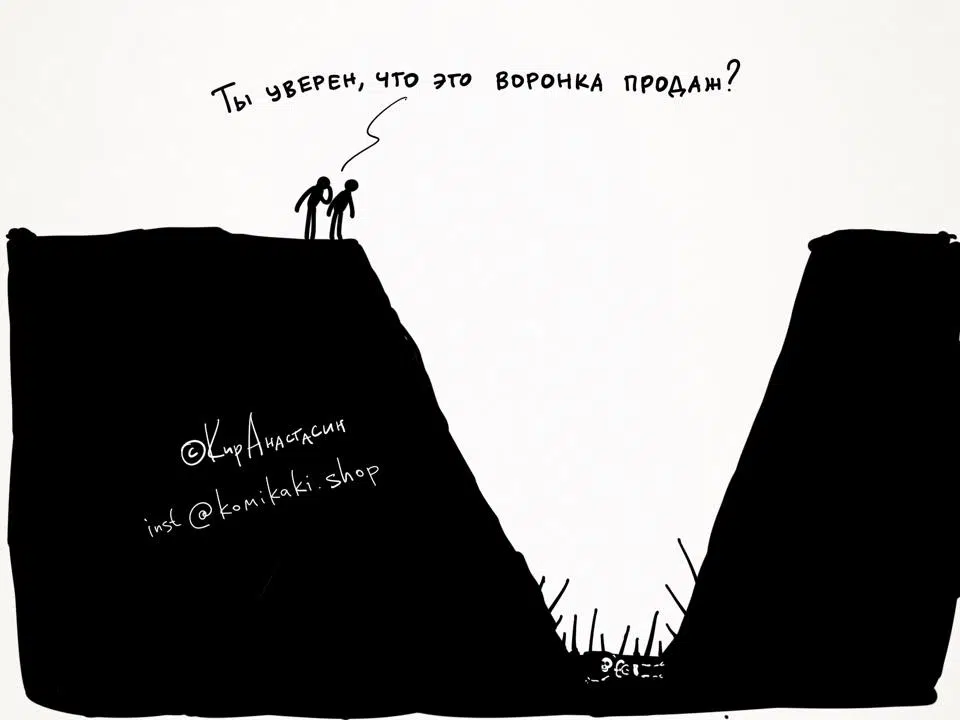 Ты уверен, что это воронка продаж?
©КирАнастасин
inst @komikaki.shop